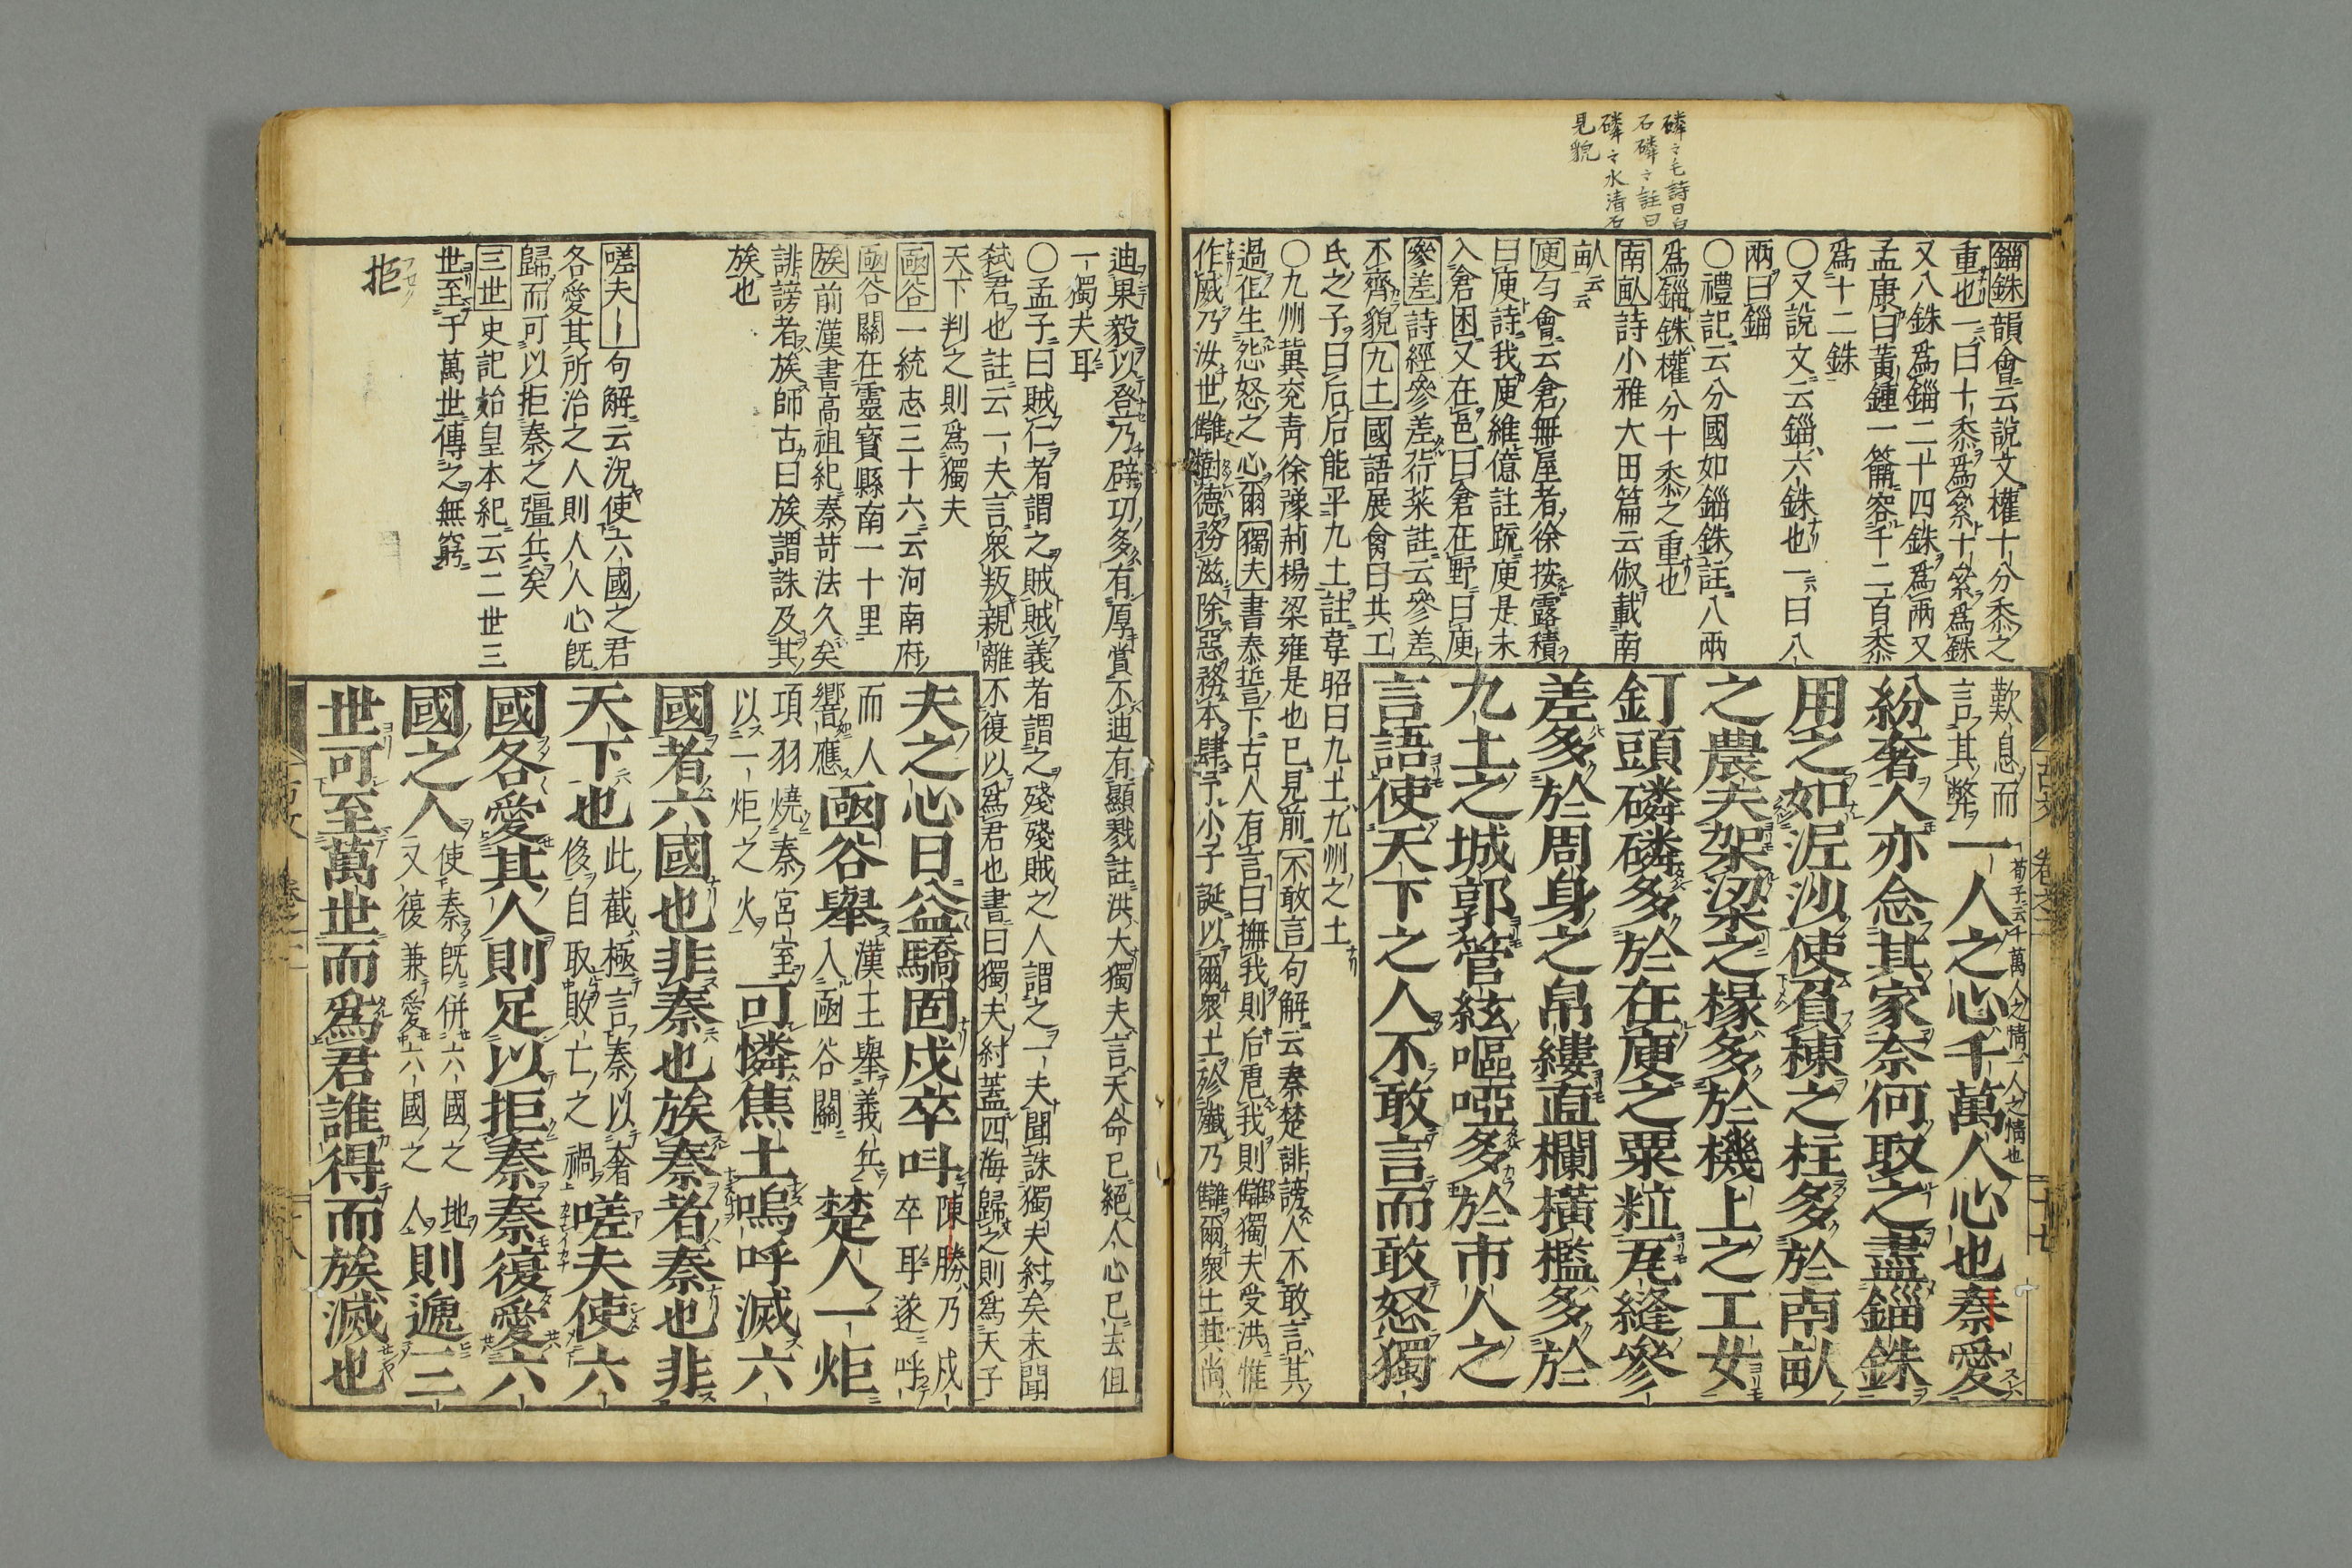 磷〻毛詩曰白
石磷〻註曰
磷〻水清石
見貌
錙銖韻會云說文權十分黍之
重也一曰十黍爲絫十絫爲銖
又八銖爲錙二十四銖爲兩又
孟康曰黃鍾一籥容千二百黍
爲十二銖
〇又說文云錙六銖也一曰八
兩曰錙
〇禮記云分國如錙銖註八兩
爲錙銖權分十黍之重也
南畝詩小雅大田篇云俶載南
畝云云
庾勻會云倉無屋者徐按露積
曰庾詩我庾維億註疏庾是未
入倉囷又在邑曰倉在野曰庾
參差詩經參差荇菜註云參差
不齊貌九土國語展禽曰共工
氏之子曰后后能平九土註韋昭曰九土九州之土
〇九州冀兗青徐豫荊楊梁雍是也已見前不敢言句解云秦楚誹謗人不敢言其
過但生忿怒之心爾獨夫書泰誓下古人有言曰撫我則后虐我則讎獨夫受洪惟
作威乃汝世讎樹德務滋除惡務本肆予小子誕以爾衆士殄殲乃讎爾衆士其尚
歎息而
言其弊
一人之心千萬人心也秦愛
荀子云千萬人之情一人之情也
紛奢人亦念其家奈何取之盡錙銖
用之如泥沙使負棟之柱多於南畝
之農夫架梁之椽多於機上之工女
釘頭磷磷多於在庾之粟粒瓦縫參
差多於周身之帛縷直欄橫檻多於
九土之城郭管絃嘔啞多於市人之
言語使天下之人不敢言而敢怒獨
古文 卷之二
二十七
迪果毅以登乃辟功多有厚賞不迪有顯戮註洪大獨夫言天命已絕人心已去但
一獨夫耳
〇孟子曰賊仁者謂之賊賊義者謂之殘殘賊之人謂之一夫聞誅獨夫紂矣未聞
弑君也註云一夫言衆叛親離不復以爲君也書曰獨夫紂蓋四海歸之則爲天子
天下判之則爲獨夫
凾谷一統志三十六云河南府
凾谷關在靈寶縣南一十里
族前漢書高祖紀秦苛法久矣
誹謗者族師古曰族謂誅及其
族也
嗟夫句解云況使六國之君
各愛其所治之人則人人心旣
歸而可以拒秦之彊兵矣
三世史記始皇本紀云二世三
世至于萬世傳之無窮
拒フセク
夫之心日益驕固戍卒叫
陳勝乃戍
卒耳遂呼
而人
響應
凾谷舉
漢士舉義兵
入凾谷關
楚人一炬
項羽燒秦宮室
以一炬之火
可憐焦土嗚呼滅六
國者六國也非秦也族秦者秦也非
天下也
此截極言秦以奢
侈自取敗亡之禍
嗟夫使六
國各愛其人則足以拒秦秦復愛六
國之人
使秦旣併六國之地
又復兼愛六國之人
則遞三
世可至萬世而爲君誰得而族滅也